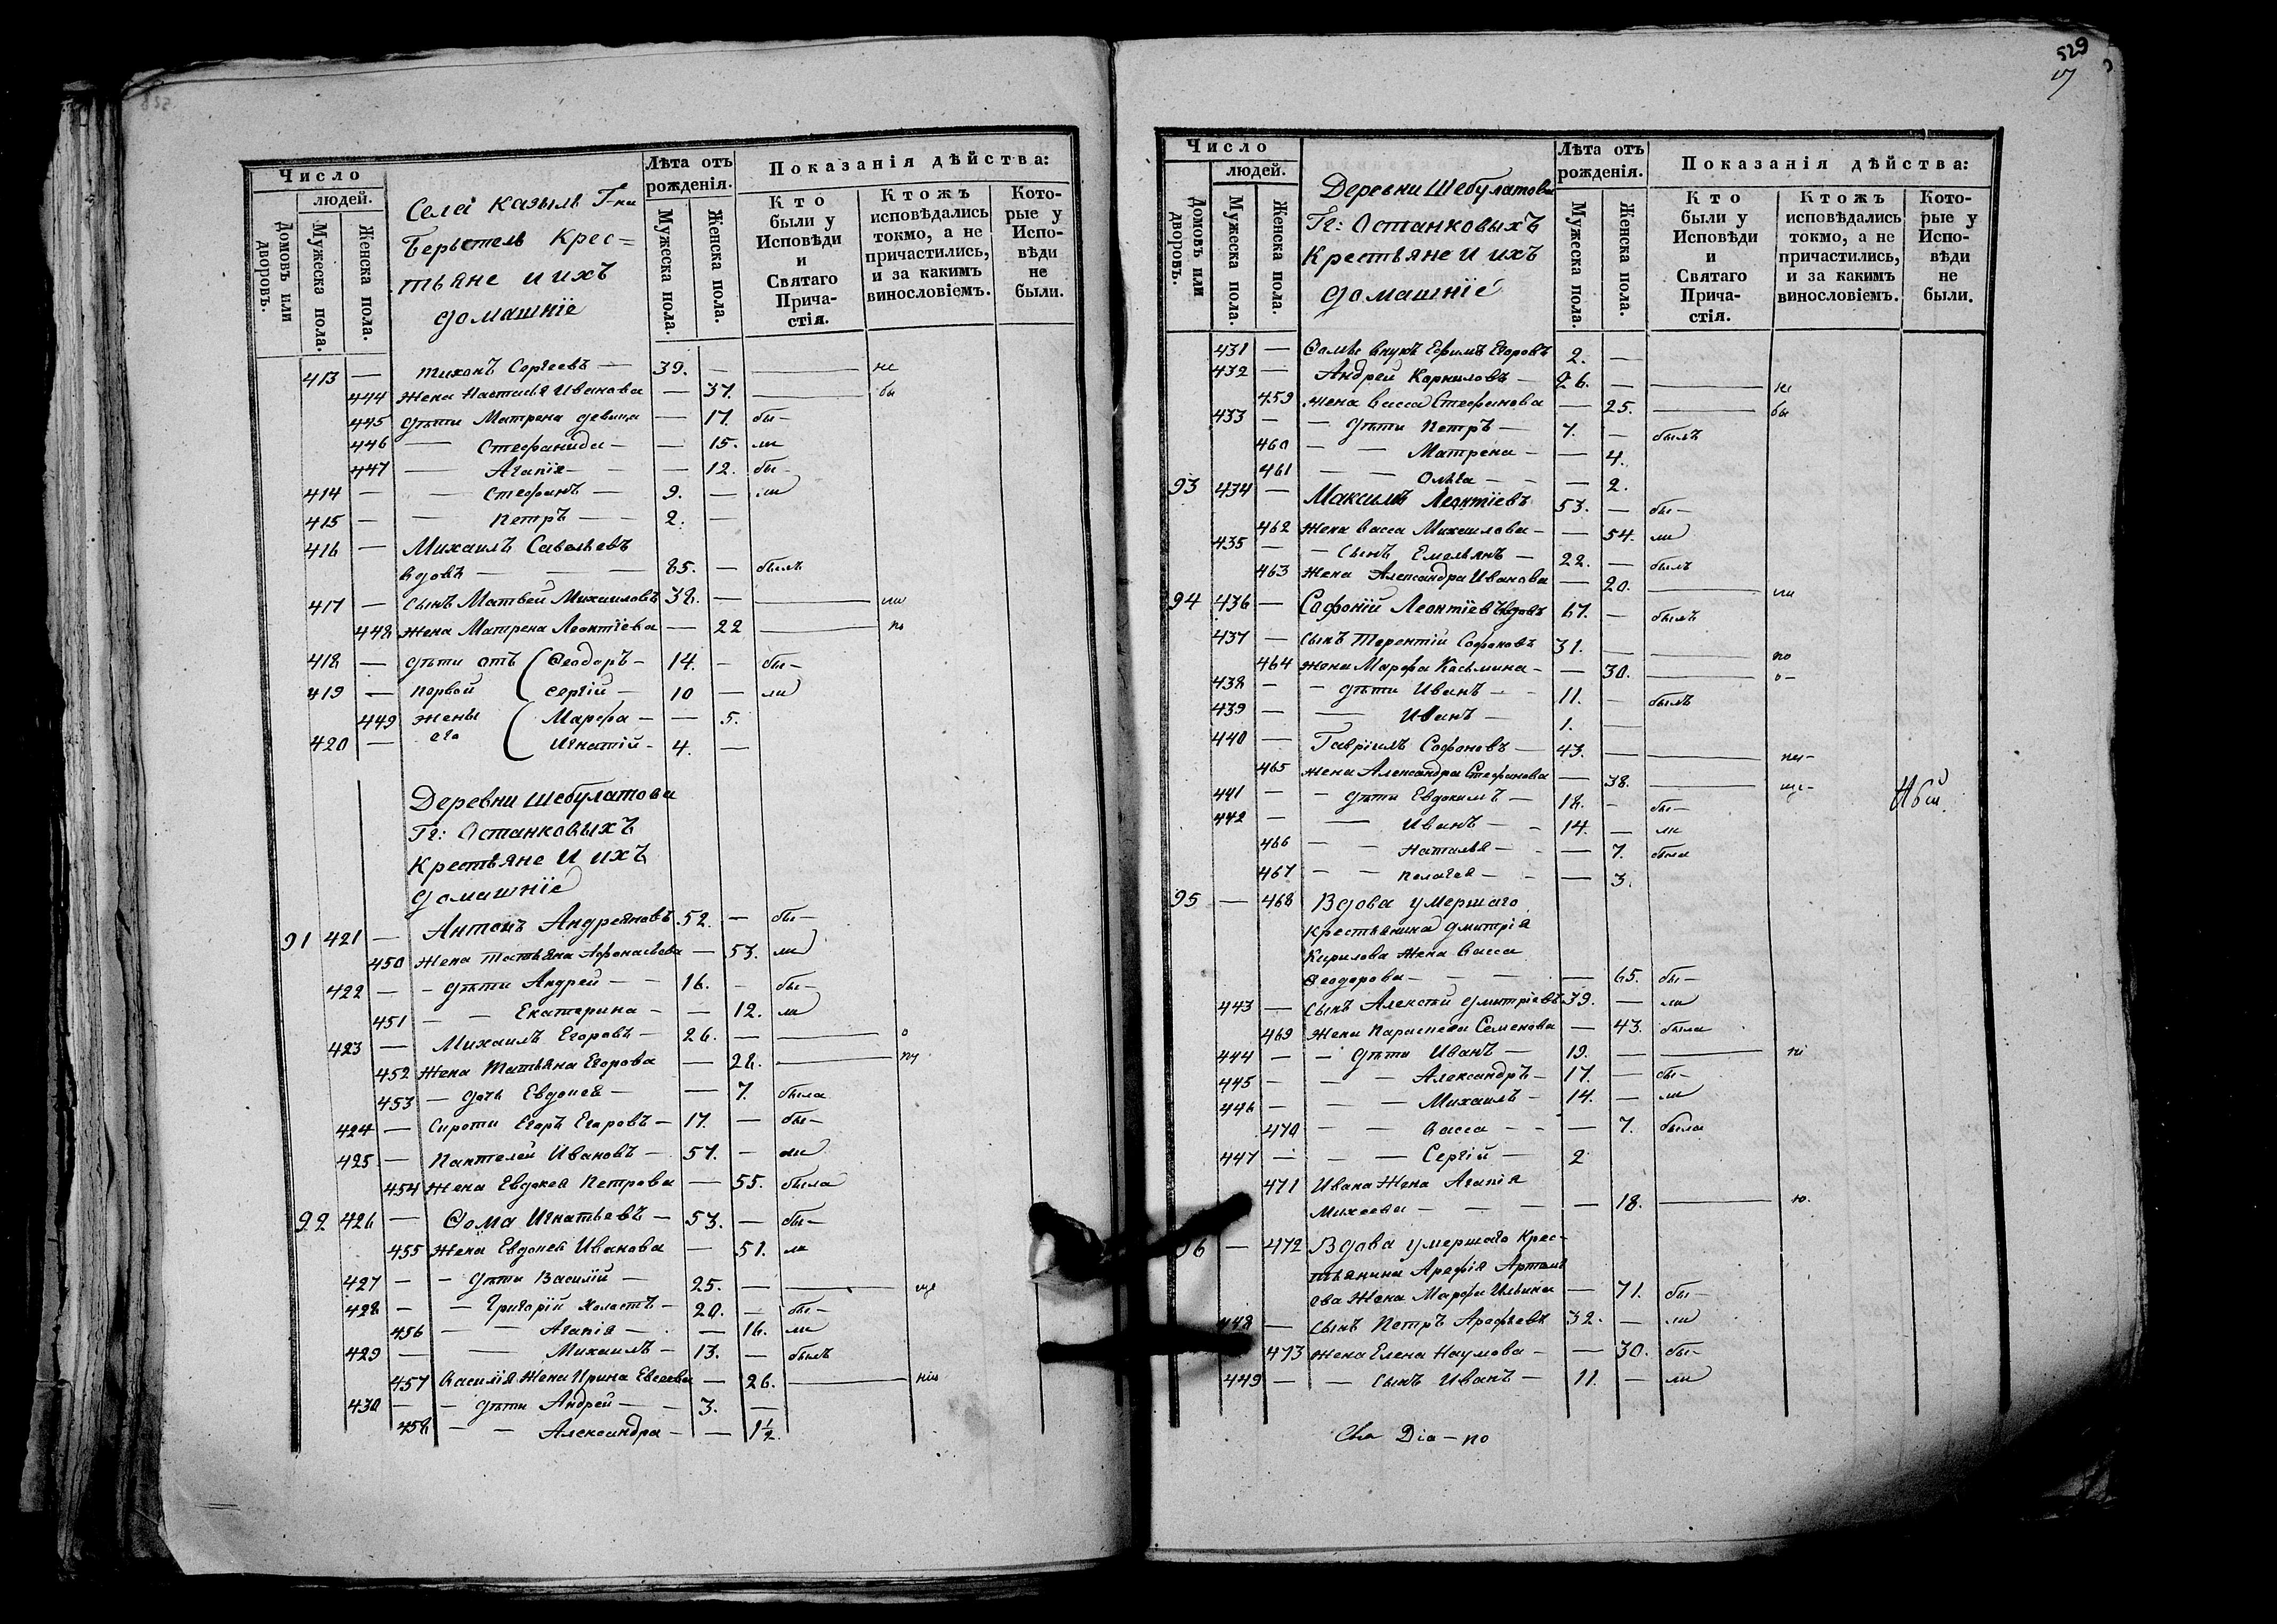 529
Число
людей.
Домовъ или дворовъ.
Мужеска пола.
Женска пола.
Села Казыль Г-жи
Берьстель Крес=
тьяне и ихъ
домашніе
Лѣта отъ рожденія.
Мужеска пола.
Женска пола.
Показанія дѣйства:
Кто были у Исповѣди и Святаго Причастія.
Ктожъ исповѣдались токмо, а не причастились, и за какимъ винословіемъ.
Которые у Исповѣди не были.
413 — Тихонъ Сергеевъ — 39. — — не
444 Жена Настасья Иванова — 37. — бы
445 дѣти Матрена девица — 17. бы—
446 — Стефанида — — 15. ли
447 — Агапія — — 12. бы—
414 — — Стефанъ — 9. — ли
415 — — Петръ — 2. —
416 — Михаилъ Савельевъ
вдовъ — — 85. — былъ
417 — сынъ Матвей Михаиловъ 38. — — ли
448 жена Матрена Леонтіева — 22 — по
418 — дѣти отъ Феодоръ — 14. — бы—
419 — первой Сергій — 10 — ли
449 жены Марфа — — 5.
420 — его Игнатій — 4. —
Деревни Шебулатова
Гг: Останковыхъ
Крестьяне и ихъ
домашніе
91 421 — Антонъ Андреяновъ 52. — бы—
450 Жена Татьяна Афонасьева — 53. ли
422 — — дѣти Андрей — 16. — бы—
451 — — Екатерина — — 12. ли
423 — Михаилъ Егоровъ — 26. — — о
452 Жена Татьяна Егорова — 28. — пу
453 — дочь Евдокея — — 7. была
424 — Сироти Егоръ Егоровъ — 17. — бы—
425 — Пантелей Ивановъ — 57. — ли
454 Жена Евдокея Петрова — 55. была
92 426 — Фома Игнатьевъ — 53. — бы—
455 Жена Евдокея Иванова — 51. ли
427 — — дѣти Василій — 25. — — ще
428 — — Григорій холостъ — 20. — бы—
456 — — Агапія — — 16. ли
429 — — Михаилъ — 13. — былъ
457 Василія Жена Ирина Евсеева — 26. — нію
430 — — дѣти Андрей — 3. —
458 — — Александра — — 1½.
Число
людей.
Домовъ или дворовъ.
Мужеска пола.
Женска пола.
Деревни Шебулатова
Гг: Останковыхъ
Крестьяне и ихъ
домашніе
Лѣта отъ рожденія.
Мужеска пола.
Женска пола.
Показанія дѣйства:
Кто были у Исповѣди и Святаго Причастія.
Ктожъ исповѣдались токмо, а не причастились, и за какимъ винословіемъ.
Которые у Исповѣди не были.
431 — Фомы внукъ Ефимъ Егоровъ 2. —
432 — Андрей Корниловъ — 26. — — не
459 жена Васса Стефанова — 25. — бы
433 — — дѣти Петръ — 7. — былъ
460 — — Матрена — — 4.
461 — — Ольга — — 2.
93 434 — Максимъ Леонтіевъ 53. — бы—
462 Жена Васса Михаилова — — 54. ли
435 — — Сынъ Емельянъ — 22. — былъ
463 Жена Александра Иванова — 20. — ли
94 436 — Софоній Леонтіевъ вдовъ 67. — былъ
437 — сынъ Терентій Софоновъ 31. — — по
464 жена Марфа Касьмина — — 30. — о—
438 — — дѣти Иванъ — 11. — былъ
439 — — Иванъ — 1. —
440 — Гавріилъ Софоновъ — 43. — — пу—
465 жена Александра Стефанова — 38. — ще—
441 — — дѣти Евдокимъ — 18. — бы—
442 — — Иванъ — 14. — ли
466 — — Наталья — — 7. была
467 — — Пелагея — — 3.
95 — 468 Вдова умершаго
крестьянина Дмитрія
Кирилова Жена Васса
Феодорова — — — 65. бы—
443 — сынъ Алексѣй Дмитріевъ 39. — ли
469 Жена Параскева Семенова — 43. была
444 — — дѣти Иванъ — 19. — — ні
445 — — Александръ — 17. — бы—
446 — — Михаилъ — 14. — ли
470 — — Васса — — 7. была
447 — — Сергій — 2
471 Ивана Жена Агапія
Михеева — — — 18. — ю.
96 — 472 Вдова умершаго Крес-
тьянина Арефія Артемь
ева Жена Марфа Ильина — 71. бы—
448 — сынъ Петръ Арефьевъ 32. — ли
473 Жена Елена Наумова — — 30. бы—
449 — — сынъ Иванъ — 11. — ли
Діа — по